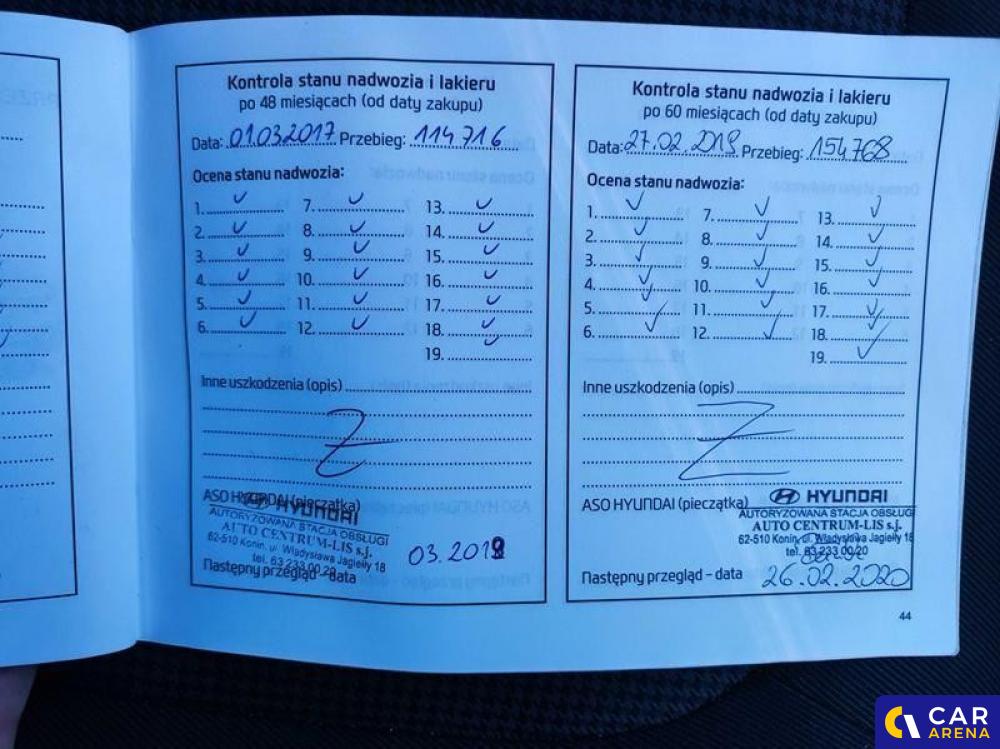 Kontrola stanu nadwozia i lakieru
po 48 miesiącach (od daty zakupu)
Data: 01.03.2017 Przebieg: 114 716
Ocena stanu nadwozia:
1. ✓ 7. ✓ 13. ✓
2. ✓ 8. ✓ 14. ✓
3. ✓ 9. ✓ 15. ✓
4. ✓ 10. ✓ 16. ✓
5. ✓ 11. ✓ 17. ✓
6. ✓ 12. ✓ 18. ✓
19. ✓
Inne uszkodzenia (opis)
ASO HYUNDAI (pieczątka)
HYUNDAI
AUTORYZOWANA STACJA OBSŁUGI
AUTO CENTRUM-LIS s.j.
62-510 Konin, ul. Władysława Jagiełły 18
tel. 63 233 00 20
03.2018
Następny przegląd – data
Kontrola stanu nadwozia i lakieru
po 60 miesiącach (od daty zakupu)
Data: 27.02.2019 Przebieg: 154 768
Ocena stanu nadwozia:
1. ✓ 7. ✓ 13. ✓
2. ✓ 8. ✓ 14. ✓
3. ✓ 9. ✓ 15. ✓
4. ✓ 10. ✓ 16. ✓
5. ✓ 11. ✓ 17. ✓
6. ✓ 12. ✓ 18. ✓
19. ✓
Inne uszkodzenia (opis)
ASO HYUNDAI (pieczątka)
HYUNDAI
AUTORYZOWANA STACJA OBSŁUGI
AUTO CENTRUM-LIS s.j.
62-510 Konin, ul. Władysława Jagiełły 18
tel. 63 233 00 20
Następny przegląd – data 26.02.2020
44
CAR
ARENA